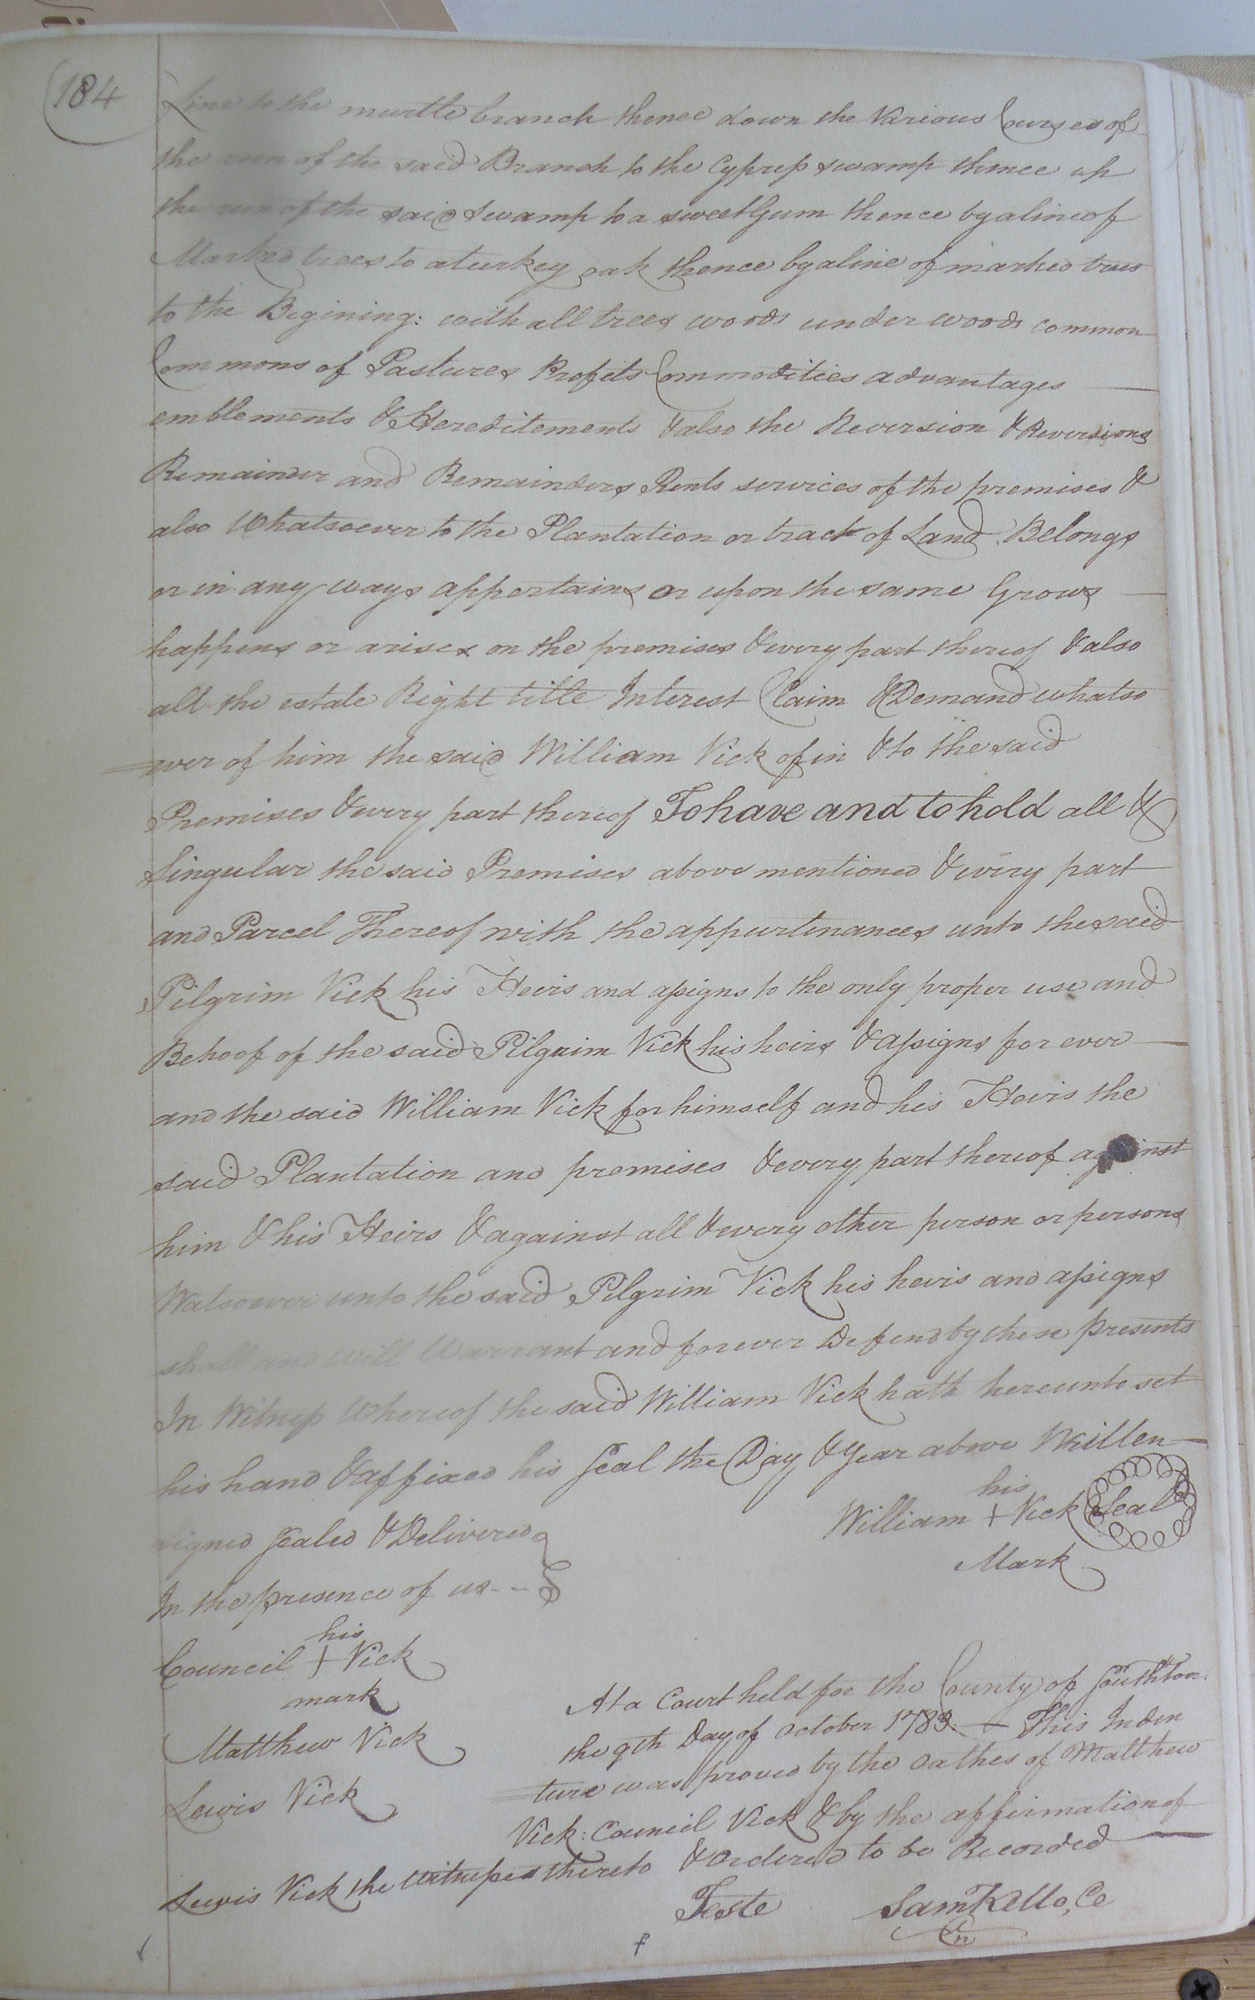 184
Line to the murtle branch thence down the Various Courses of
the run of the said Branch to the Cypress swamp thence up
the run of the said Swamp to a sweet Gum thence by a line of
Marked trees to a turkey oak thence by a line of marked trees
to the Begining: with all trees woods under woods common
Commons of Pastures Profits Commodities advantages
emblements & Hereditements & also the Reversion & Reversions
Remainder and Remainders Rents services of the premises &
also Whatsoever to the Plantation or tract of Land Belongs
or in any ways appertains or upon the same Grows
happens or arises on the premises & every part thereof & also
all the estate Right title Interest Claim & Demand whatso
=ever of him the said William Vick of in & to the said
Premises & every part thereof To have and to hold all &
Singular the said Premises above mentioned & every part
and Parcel Thereof with the appurtinances unto the said
Pilgrim Vick his Heirs and assigns to the only proper use and
Behoof of the said Pilgrim Vick his heirs & assigns for ever
and the said William Vick for himself and his Heirs the
said Plantation and premises & every part thereof against
him & his Heirs & against all & every other person or persons
Watsoever unto the said Pilgrim Vick his heirs and assigns
shall and will Warrant and forever Defend by these presents
In Witness Whereof the said William Vick hath hereunto set
his hand & affixed his Seal the Day & Year above Written
his
William + Vick Seal
Mark
Signed Sealed & Delivered
In the presence of us
his
Council + Vick
mark
Matthew Vick
Lewis Vick
At a Court held for the County of Southton
the 9th Day of October 1783. This Inden
=ture was proved by the oathes of Matthew
Vick: Council Vick & by the affirmation of
Lewis Vick the witnesses thereto & ordered to be Recorded
Teste Saml Kello, Ce
Cn
f